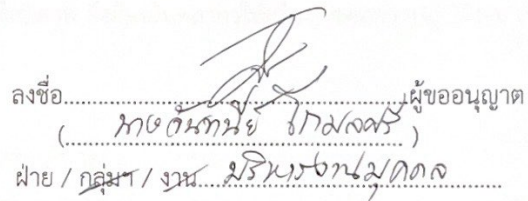 ลงชื่อ..............................ผู้ขออนุญาต
( นาง โกมลศรี )
ฝ่าย / กลุ่มฯ / งาน บริหารงานบุคคล